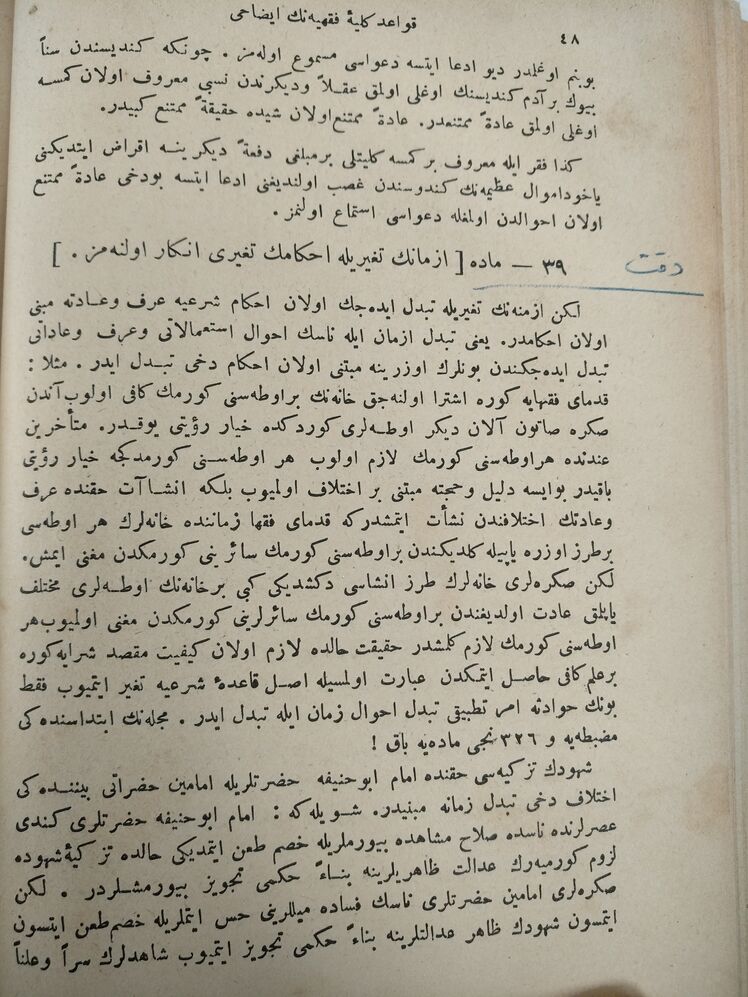 ٤٨
قواعد كلیهٔ فقهیه‌نك ایضاحی
بوبنم اوغلمدر دیو ادعا ایتسه دعواسی مسموع اوله‌مز . چونكه كندیسندن سناً
بیوك برآدم كندیسنك اوغلی اولمق عقلاً ودیكرندن نسبی معروف اولان كمسه
اوغلی اولمق عادةً ممتنعدر. عادةً ممتنع‌اولان شیده حقیقةً ممتنع كبیدر.
كذا فقر ایله معروف بر كمسه كلیتلی برمبلغی دفعةً دیكر ینه اقراض ایتدیكنی
یاخوداموال عظیمه‌نك كندوسندن غصب اولندیغنی ادعا ایتسه بودخی عادةً ممتنع
اولان احوالدن اولمغله دعواسی استماع اولنمز .
٣٩ — ماده [ ازمانك تغیریله احكامك تغیری انكار اولنه‌مز . ] دقت
لكن ازمنه‌نك تغیریله تبدل ایده‌جك اولان احكام شرعیه عرف وعادته مبنی
اولان احكامدر. یعنی تبدل ازمان ایله ناسك احوال استعمالاتی وعرف وعاداتی
تبدل ایده‌جكندن بونلرك اوزرینه مبتنی اولان احكام دخی تبدل ایدر . مثلا :
قدمای فقهایه كوره اشترا اولنه‌جق خانه‌نك براوطه‌سنی كورمك كافی اولوب‌آندن
صكره صاتون آلان دیكر اوطه‌لری كوردكده خیار رؤیتی یوقدر. متأخرین
عندنده هراوطه‌سنی كورمك لازم اولوب هر اوطه‌سنی كورمدكجه خیار رؤیتی
باقیدر بوایسه دلیل وحجته مبتنی بر اختلاف اولمیوب بلكه انشاآت حقنده عرف
وعادتك اختلافندن نشأت ایتمشدركه قدمای فقها زماننده خانه‌لرك هر اوطه‌سی
برطرز اوزره یاپیله كلدیكندن براوطه‌سنی كورمك سائر ینی كورمكدن مغنی ایمش.
لكن صكره‌لری خانه‌لرك طرز انشاسی دكشدیكی كبی برخانه‌نك اوطه‌لری مختلف
یاپلق عادت اولدیغندن براوطه‌سنی كورمك سائرلرینی كورمكدن مغنی اولمیوب‌هر
اوطه‌سنی كورمك لازم كلمشدر حقیقت حالده لازم اولان كیفیت مقصد شرایه‌كوره
برعلم‌كافی حاصل ایتمكدن عبارت اولمسیله اصل قاعدهٔ شرعیه تغیر ایتمیوب فقط
بونك حوادثه امر تطبیقی تبدل احوال زمان ایله تبدل ایدر . مجله‌نك ابتداسنده كی
مضبطه‌یه و ٣٢٦ نجی ماده‌یه باق !
شهودك تزكیه‌سی حقنده امام ابوحنیفه حضرتلریله امامین حضراتی بیننده كی
اختلاف دخی تبدل زمانه مبنیدر. شویله‌كه : امام ابوحنیفه حضرتلری كندی
عصرلرنده ناسده صلاح مشاهده بیورملریله خصم طعن ایتمدیكی حالده تزكیهٔ شهوده
لزوم كورمیه‌رك عدالت ظاهریلرینه بناءً حكمی تجویز بیورمشلردر . لكن
صكره‌لری امامین حضرتلری ناسك فساده میللرینی حس ایتملریله خصم‌طعن ایتسون
ایتمسون شهودك ظاهر عدالتلرینه بناءً حكمی تجویز ایتمیوب شاهدلرك سراً وعلناً